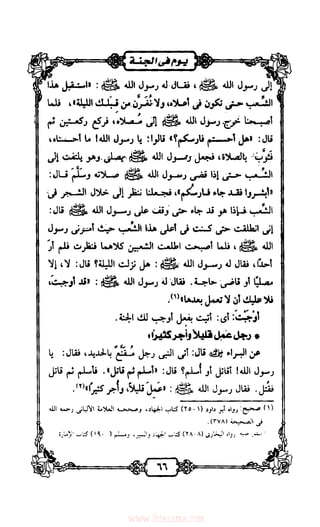 يوم فى الجنة
إلى رسول الله ﷺ، فقال له رسول الله ﷺ: «استقبل هذا
الشعب حتى تكون فى أعلاه، ولا نُغَرَّن من قبلك الليلة»، فلما
أصبحنا خرج رسول الله ﷺ إلى مُصلاه، فركع ركعتين ثم
قال: «هل أحسستم فارسكم؟» قالوا: يا رسول الله! ما أحسسناه،
فثُوِّبَ بالصلاة، فجعل رسول الله ﷺ يصلى وهو يلتفت إلى
الشعب حتى إذا قضى رسول الله ﷺ صلاته وسلَّم قال:
«أبشروا فقد جاء فارسكم»، فجعلنا ننظر إلى خلال الشجر فى
الشعب فإذا هو قد جاء حتى وقف على رسول الله ﷺ قال:
إنى انطلقت حتى كنت فى أعلى هذا الشعب حيث أمرنى رسول
الله ﷺ، فلما أصبحت اطلعت الشعبين كلاهما فنظرت فلم أرَ
أحدًا، فقال له رسول الله ﷺ: هل نزلت الليلة؟ قال: لا، إلا
مصليًا أو قاضى حاجة. فقال له رسول الله ﷺ: «قد أوجبتَ،
فلا عليك أن لا تعمل بعدها»(١).
أوْجَبْتَ: أى: أتيت بفعل أوجب لك الجنة.
* رجل عَمِلَ قليلاً وأُجر كثيرًا:
عن البراء قال: أتى النبى رجل مُقنَّع بالحديد، فقال: يا
رسول الله! أقاتل أو أُسلم؟ قال: «أسلم ثم قاتل». فأسلم ثم قاتل
فقُتل. فقال رسول الله ﷺ: «عَمِلَ قليلاً، وأُجر كثيرًا»(٢).
(١) صحيح: رواه أبو داود (٢٥٠١) كتاب الجهاد، وصححه العلامة الألبانى رحمه الله
فى الصحيحة (٣٧٨).
رواه البخارى (٢٨٠٨) كتاب الجهاد والسير، ومسلم (١٩٠٠) كتاب الإمارة
٦٦
www.ibtesama.com